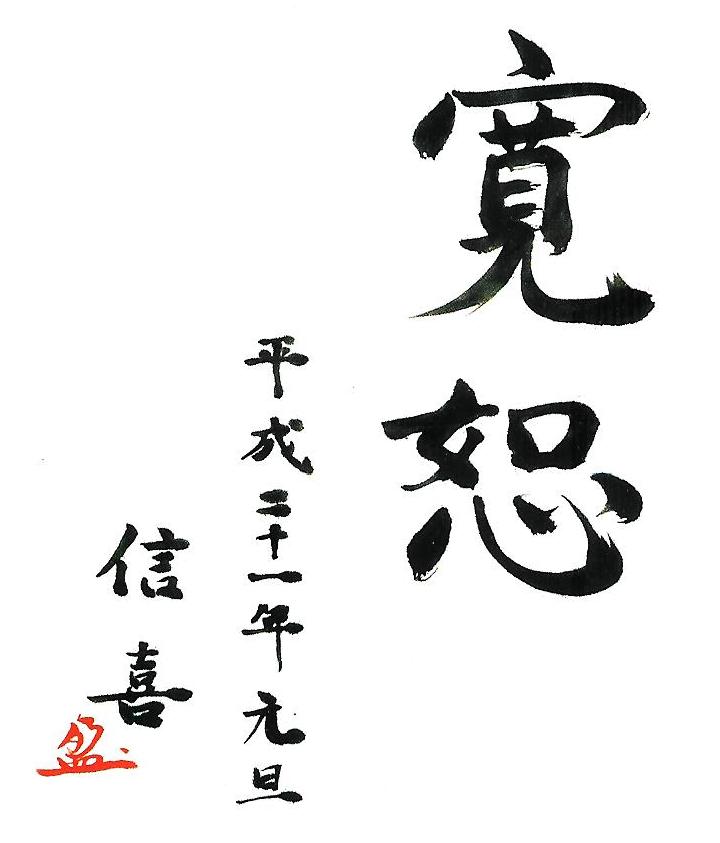 寛恕
平成二十一年元旦
信喜
盈